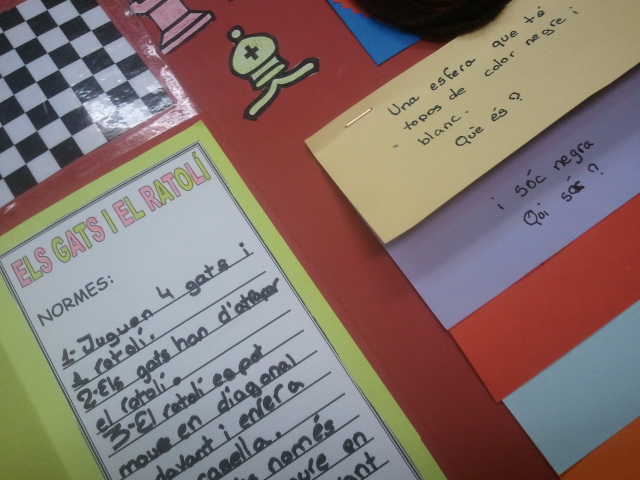 ELS GATS I EL RATOLÍ
NORMES:
1-Juguen 4 gats i
1 ratolí.
2-Els gats han d'atrapar
el ratolí.
3-El ratolí es pot
moure en diagonal
davant i enrera
casella.
només
moure en
Una esfera que té
topos de color negre i
blanc.
Què és?
i sóc negra
Qui sóc?